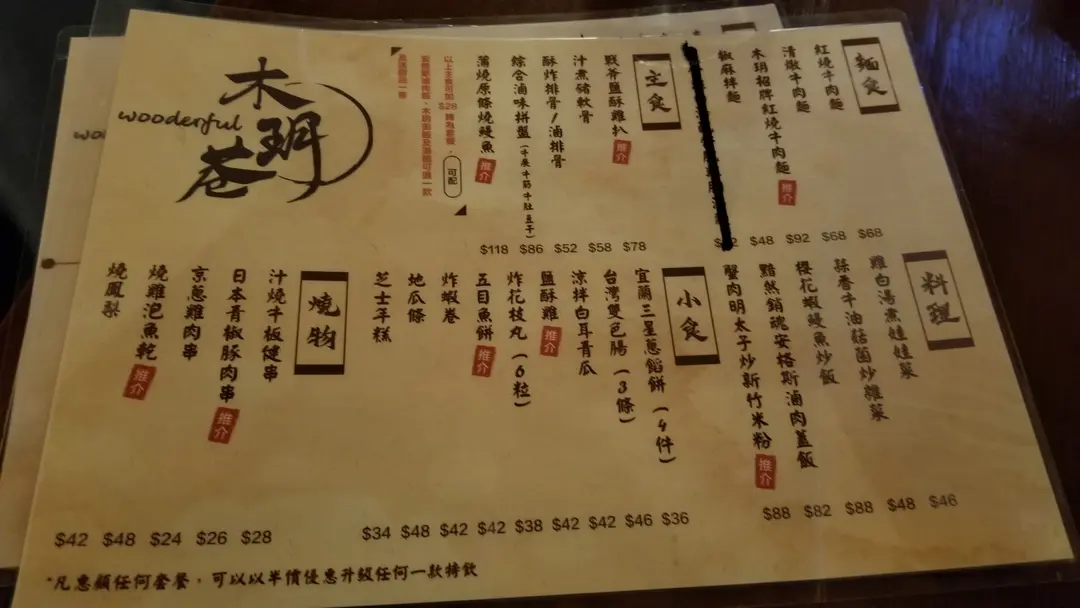 麵食
紅燒牛肉麵 $68
清燉牛肉麵 $68
木玥招牌紅燒牛肉麵 推介 $92
椒麻拌麵 $48
主食
戰斧鹽酥雞扒 推介 $78
汁煮豬軟骨 $58
酥炸排骨/滷排骨 $52
綜合滷味拼盤(牛展牛筋牛肚豆干) $86
蒲燒原條燒鰻魚 推介 $118
以上主食可加$28轉為套餐,可配
木玥巷
wooderful
料理
雞白湯煮娃娃菜 $46
蒜香牛油菇菌炒雜菜 $48
櫻花蝦鰻魚炒飯 $88
黯然銷魂安格斯滷肉蓋飯 $82
蟹肉明太子炒新竹米粉 推介 $88
小食
宜蘭三星蔥餡餅(4件) $36
台灣雙色腸(3條) $46
涼拌白耳青瓜 $42
鹽酥雞 推介 $42
炸花枝丸(6粒) $38
五目魚餅 推介 $42
炸蝦卷 $42
地瓜條 $48
芝士年糕 $34
燒物
汁燒牛板健串 $28
日本青椒豚肉串 推介 $26
京蔥雞肉串 $24
燒雞泡魚乾 推介 $48
燒鳳梨 $42
*凡惠顧任何套餐,可以以半價優惠升級任何一款特飲